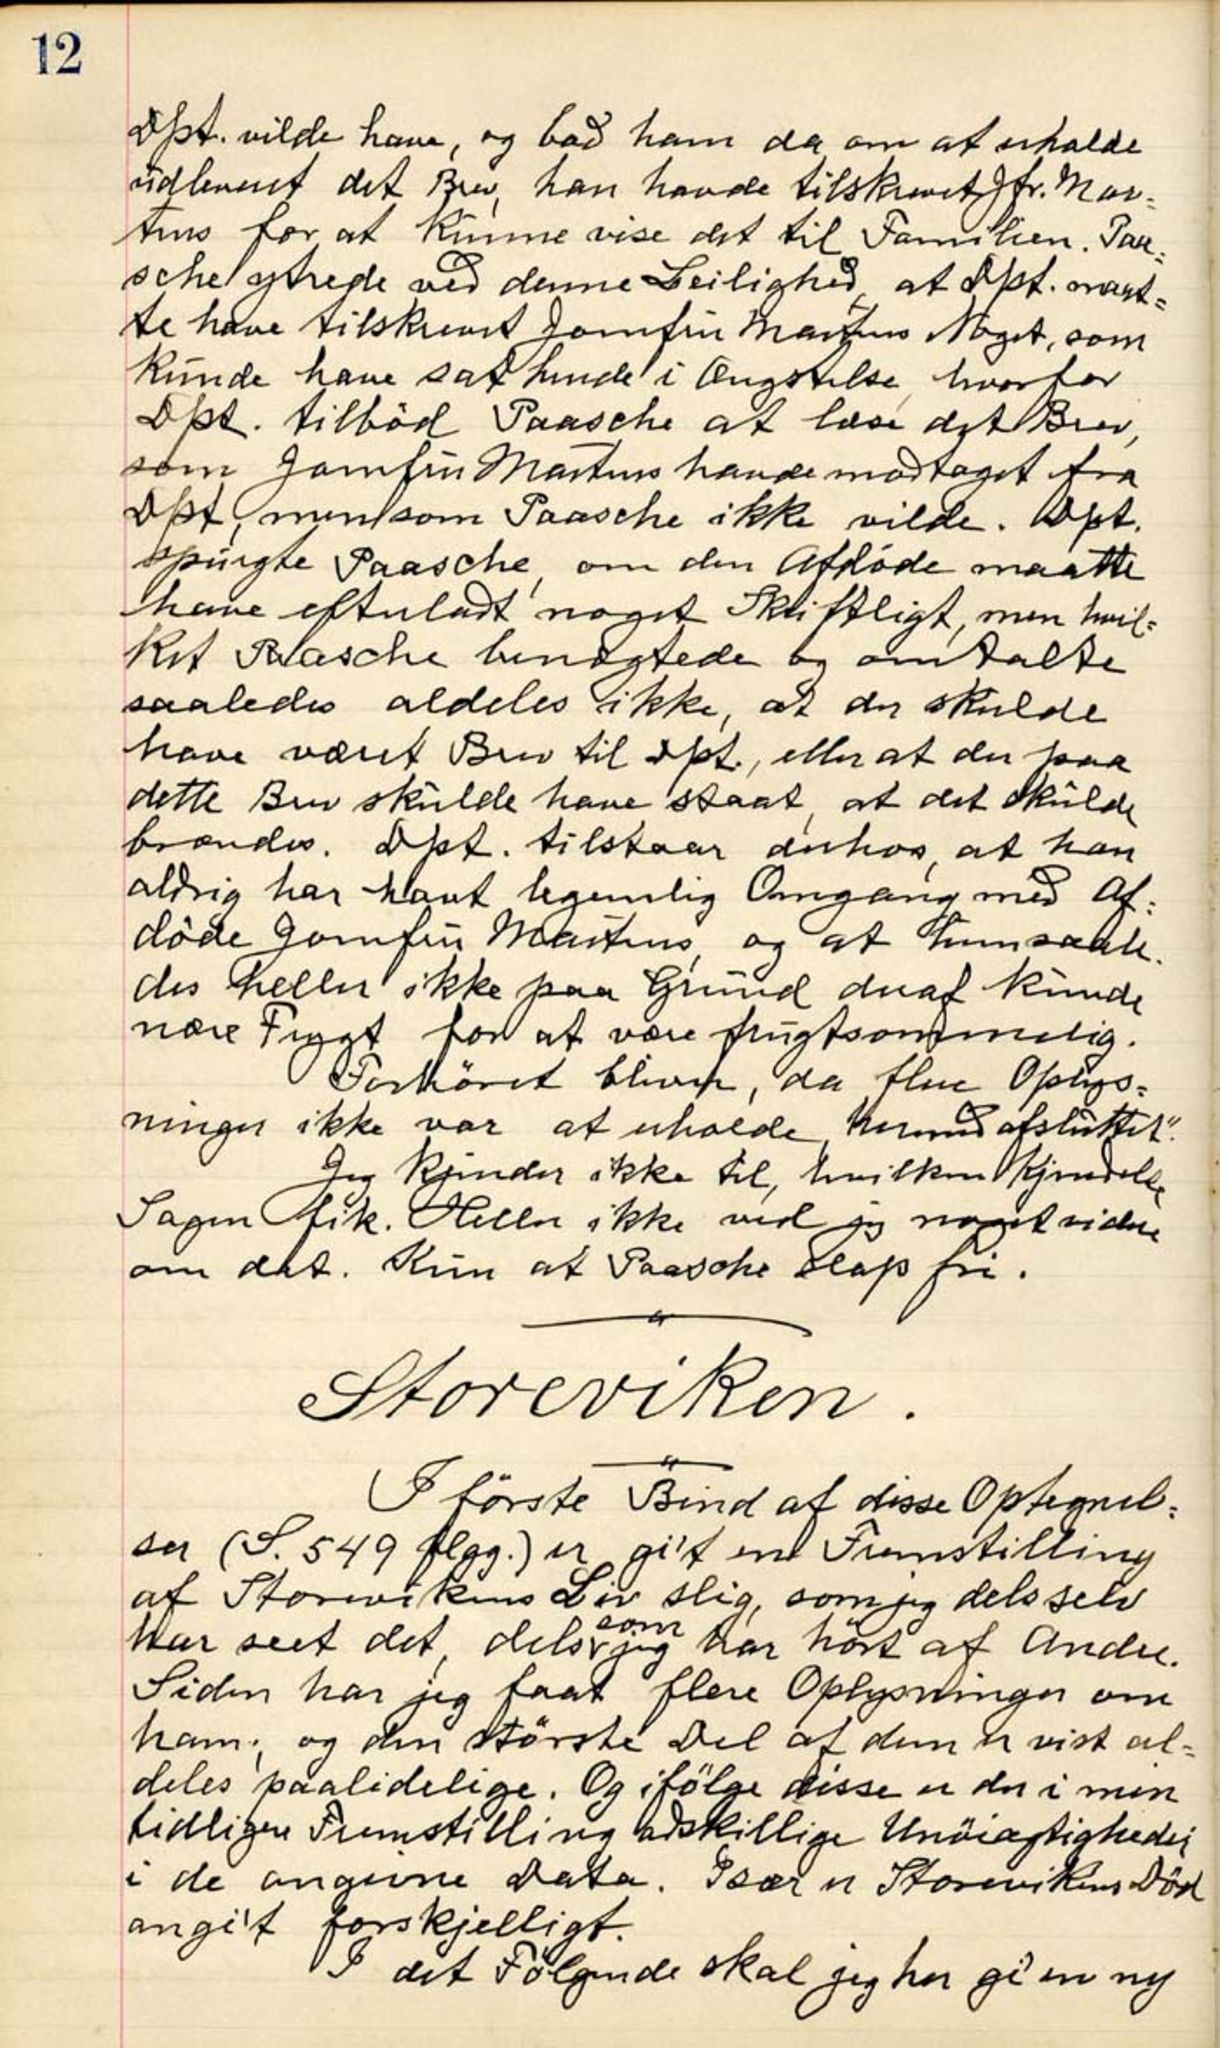 12
Dpt. vilde have, og bad ham da om at erholde
udleveret det Brev, han havde tilskrevet Jfr. Mar-
tens for at kunne vise det til Familien. Paa-
sche ytrede ved denne Leilighed, at Dpt. maat-
te have tilskrevet Jomfru Martens Noget, som
kunde have sat hende i Ængstelse, hvorfor
Dpt. tilböd Paasche at læse det Brev,
som Jomfru Martens havde modtaget fra
Dpt., men som Paasche ikke vilde. Dpt.
spurgte Paasche, om den Afdöde maatte
have efterladt noget Skriftligt, men hvil-
ket Paasche benægtede og omtalte
saaledes aldeles ikke, at der skulde
have været Brev til Dpt., eller at der paa
dette Brev skulde have staat, at det skulde
brændes. Dpt. tilstaar derhos, at han
aldrig har havt legemlig Omgang med Af-
döde Jomfru Martens, og at hun saale-
des heller ikke paa Grund deraf kunde
nære Frygt for at være frugtsommelig.
Forhöret blev, da flere Oplys-
ninger ikke var at erholde, hermed afsluttet".
Jeg kjender ikke til, hvilken Kjendelse
Sagen fik. Heller ikke ved jeg noget videre
om det. Kun at Paasche slap fri.
Storeviken.
I förste Bind af disse Optegnel-
ser (S. 549 flgg.) er git en Fremstilling
af Storevikens Liv slig, som jeg dels selv
har seet det, dels som jeg har hört af Andre.
Siden har jeg faat flere Oplysninger om
ham, og den störste Del af dem er vist al-
deles paalidelige. Og ifölge disse er der i min
tidligere Fremstilling adskillige Unöiagtigheder
i de angivne Data. Især er Storevikens Död
angit forskjelligt.
I det Fölgende skal jeg her gi en ny